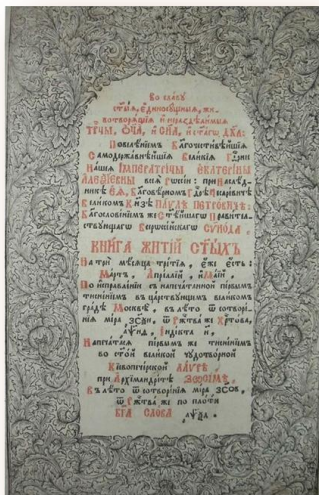 Во славу
ст҃ыѧ, є҆диносꙋщныѧ, жи-
вотворѧщїѧ и҆ нераздѣлимыѧ
Трⷪ҇цы, Ѻ҆ц҃а̀, и҆ Сн҃а, и҆ ст҃агѡ Дх҃а:
Повелѣнїемъ Благочестивѣйшїѧ
Самодержавнѣйшїѧ Великїѧ Гдⷭ҇рни
Нашеѧ Імператрицы Екатерины
Алеѯїевны всеѧ Рѡссїи: при Наслѣд-
никѣ Еѧ̀, Благовѣрномъ Гдⷭ҇рѣ Цесаревичѣ
Великомъ Кнѧзѣ Паѵлѣ Петровичѣ:
Благословенїемъ же Ст҃ѣйшагѡ Правитель-
ствꙋющагѡ Всерѡссїйскагѡ Сѵнода.
КНИГА ЖИТІЙ СТ҃ЫХЪ
На три мѣсѧца третїѧ, є҆же є҆сть:
Мартъ, Апрїллїй, и҆ Маїй,
По и҆справленїи съ напечатанной первымъ
тисненїемъ въ царствꙋющемъ великомъ
градѣ Москвѣ, въ лѣто ѿ сотворе-
нїѧ мїра
ѿ Ржⷭ҇тва же Хрⷭ҇това,
Індікта
Напечатасѧ первымъ же тисненїемъ
во ст҃ой великой чꙋдотворной
Кїевопечерской Лаѵрѣ
при Архїмандрїтѣ Зѡсімѣ,
Въ лѣто ѿ сотворенїѧ мїра
ѿ Ржⷭ҇тва же по плоти
БГ҃А СЛОВА